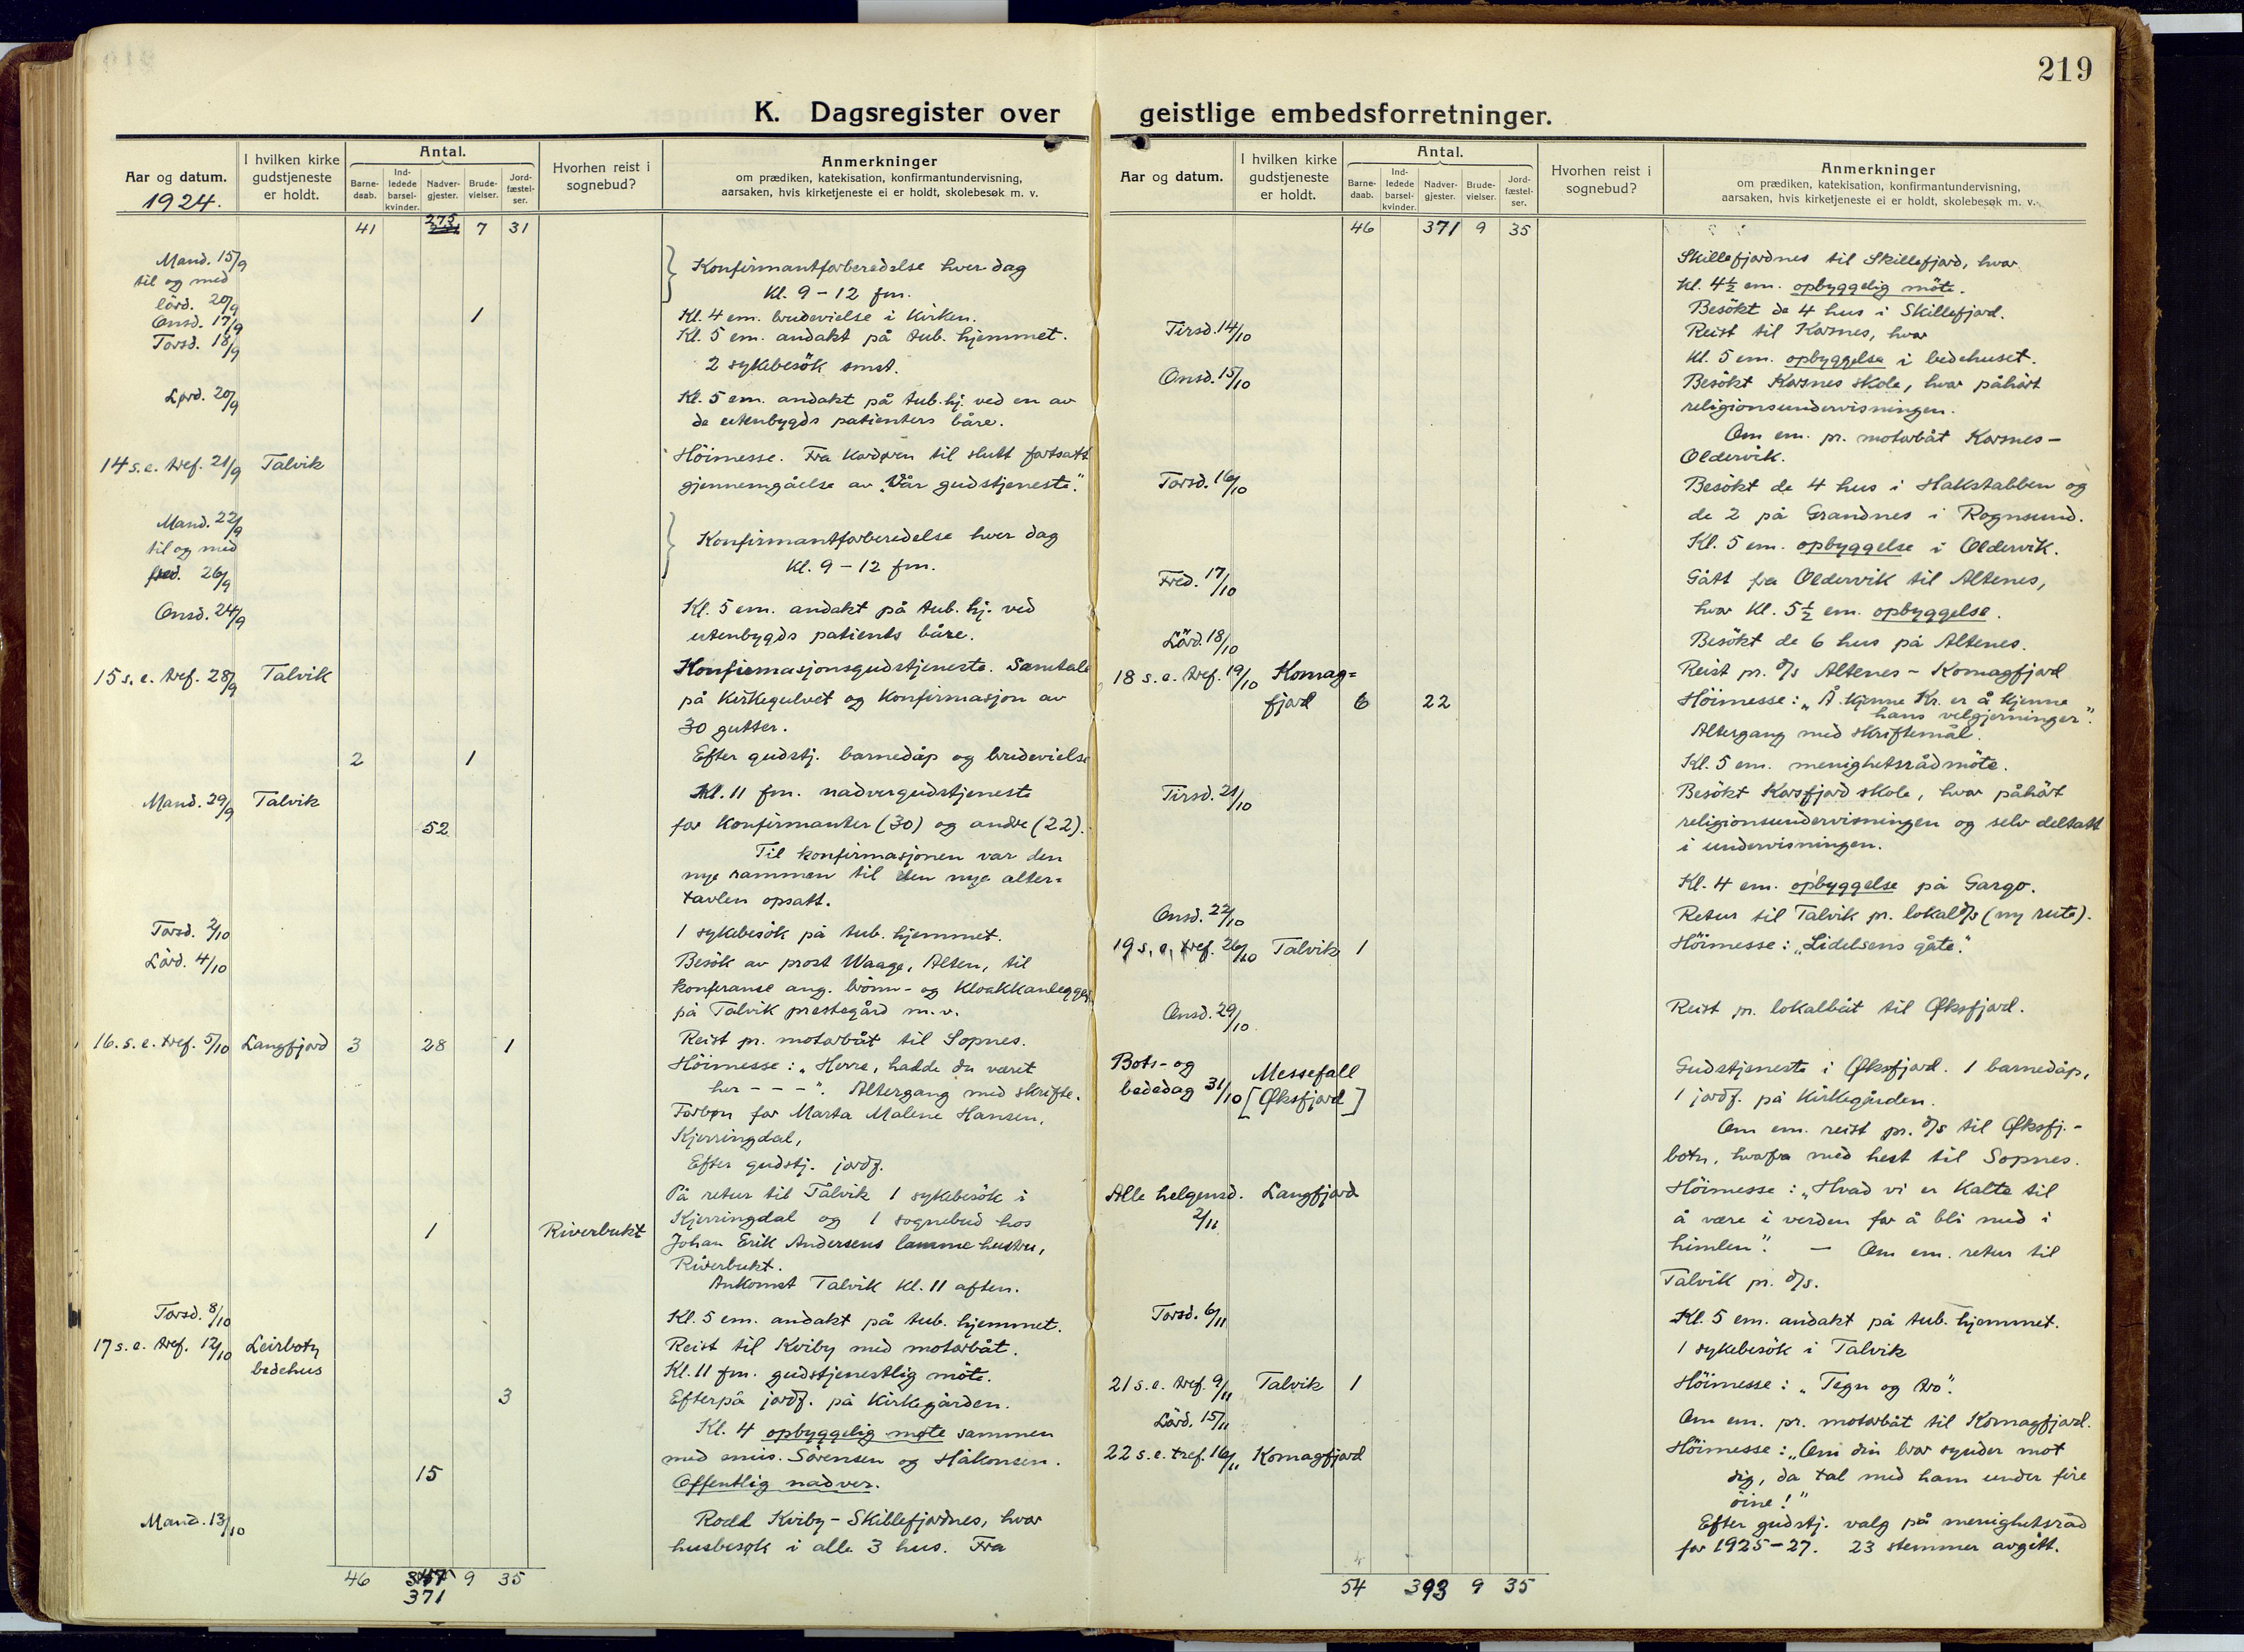 219
K. Dagsregister over geistlige embedsforretninger.
Aar og datum.
1924.
I hvilken kirke gudstjeneste er holdt.
Antal.
Barne-daab.
Ind-ledede barsel-kvinder.
Nadver-gjester.
Brude-vielser.
Jord-fæstel-ser.
Hvorhen reist i sognebud?
Anmerkninger
om prædiken, katekisation, konfirmantundervisning,
aarsaken, hvis kirketjeneste ei er holdt, skolebesøk m. v.
41 275 7 31
Mand. 15/9
til og med
lörd. 20/9
Konfirmantforberedelse hver dag
Kl. 9 - 12 fm.
Onsd. 17/9 1 Kl. 4 em. brudevielse i Kirken.
Torsd. 18/9 Kl. 5 em. andakt på tub. hjemmet.
2 sykebesök smst.
Lørd. 20/9 Kl. 5 em. andakt på tub. hj. ved en av
de utenbygds patienters båre.
14 s. e. tref. 21/9 Talvik Höimesse. Fra Kordøren til slutt fortsatt
gjennemgåelse av "Vår gudstjeneste".
Mand. 22/9
til og med
fred. 26/9
Konfirmantforberedelse hver dag
Kl. 9 - 12 fm.
Onsd. 24/9 Kl. 5 em. andakt på tub. hj. ved
utenbygds patients båre.
15 s. e. tref. 28/9 Talvik Konfirmasjonsgudstjeneste. Samtale
på Kirkegulvet og Konfirmasjon av
30 gutter.
2 1 Efter gudstj. barnedåp og brudevielse
Mand. 29/9 Talvik Kl. 11 fm. nadvergudstjeneste
52 for Konfirmanter (30) og andre (22).
Til konfirmasjonen var den
nye rammen til den nye alter=
tavlen opsatt.
Torsd. 2/10 1 sykebesök på tub. hjemmet.
Lörd. 4/10 Besök av prost Waage, Alten, til
konferanse ang. brönn- og Kloakkanlegget
på Talvik prestegård m.v.
16. s. e. tref. 5/10 Langfjord 3 28 1 Reist pr. motorbåt til Sopnes.
Höimesse: "Herre, hadde du været
her - - -". Altergang med skrifte.
Forbøn for Marta Malene Hansen,
Kjerringdal,
Efter gudstj. jordf.
På retur til Talvik 1 sykebesök i
1 Riverbukt Kjerringdal og 1 sognebud hos
Johan Erik Andersens lamme hustru,
Riverbukt.
Ankomst Talvik Kl. 11 aften.
Torsd. 8/10 Kl. 5 em. andakt på tub. hjemmet.
17 s. e. tref. 12/10 Leirbotn Reist til Kviby med motorbåt.
bedehus Kl. 11 fm. gudstjenestlig möte.
3 Efterpå jordf. på Kirkegården.
Kl. 4 opbyggelig møte sammen
med mis. Sörensen og Håkonsen.
15 Offentlig nadver.
Mand. 13/10 Rodd Kviby - Skillefjordnes, hvor
husbesøk i alle 3 hus. Fra
46 9 35
371
Aar og datum.
I hvilken kirke gudstjeneste er holdt.
Antal.
Barne-daab.
Ind-ledede barsel-kvinder.
Nadver-gjester.
Brude-vielser.
Jord-fæstel-ser.
Hvorhen reist i sognebud?
Anmerkninger
om prædiken, katekisation, konfirmantundervisning,
aarsaken, hvis kirketjeneste ei er holdt, skolebesøk m. v.
46 371 9 35
Skillefjordnes til Skillefjord, hvor
Kl. 4½ em. opbyggelig möte.
Besökt de 4 hus i Skillefjord.
Tirsd. 14/10 Reist til Korsnes, hvor
Kl. 5 em. opbyggelse i bedehuset.
Onsd. 15/10 Besökt Korsnes skole, hvor påhört
religionsundervisningen.
Om em. pr. motorbåt Korsnes -
Oldervik.
Torsd. 16/10 Besökt de 4 hus i Hakstabben og
de 2 på Grandnes i Rognsund.
Kl. 5 em. opbyggelse i Oldervik.
Fred. 17/10 Gått fra Oldervik til Altenes,
hvor Kl. 5½ em. opbyggelse.
Lörd. 18/10 Besökt de 6 hus på Altenes.
18 s. e. tref. 19/10 Komag= Reist pr. d/s Altenes - Komagfjord
fjord 6 22 Höimesse: "Å kjenne Kr. er å kjenne
hans velgjerninger".
Altergang med skriftemål.
Kl. 5 em. menighetsrådmöte.
Tirsd. 21/10 Besökt Korsfjord skole, hvor påhört
religionsundervisningen og selv deltatt
i undervisningen.
Kl. 4 em. opbyggelse på Gargo.
Onsd. 22/10 Retur til Talvik pr. lokal d/s (ny rute).
19 s. e. tref. 26/10 Talvik 1 Höimesse: "Lidelsens gåte".
Onsd. 29/10 Reist pr. lokalbåt til Øksfjord.
Bots- og Messefall Gudstjeneste i Øksfjord. 1 barnedåp,
bededag 31/10 [Øksfjord] 1 jordf. på Kirkegården.
Om em. reist pr. d/s til Øksfj.-
botn, hvorfra med hest til Sopnes.
Alle helgensd. Langfjord Höimesse: "Hvad vi er Kalte til
2/11 å være i verden for å bli med i
himlen". - Om em. retur til
Talvik pr. d/s.
Torsd. 6/11 Kl. 5 em. andakt på tub. hjemmet.
1 sykebesök i Talvik
21 s. e. tref. 9/11 Talvik 1 Höimesse: "Tegn og tro".
Lörd. 15/11 Om em. pr. motorbåt til Komagfjord.
22 s. e. tref. 16/11 Komagfjord Höimesse: "Om din bror synder mot
dig, da tal med ham under fire
öine!"
Efter gudstj. valg på menighetsråd
for 1925-27. 23 stemmer avgitt.
54 393 9 35